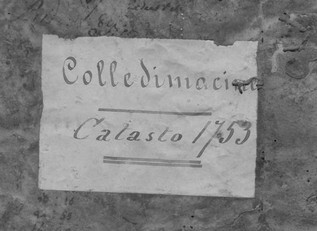 Colledimacine
Catasto 1753